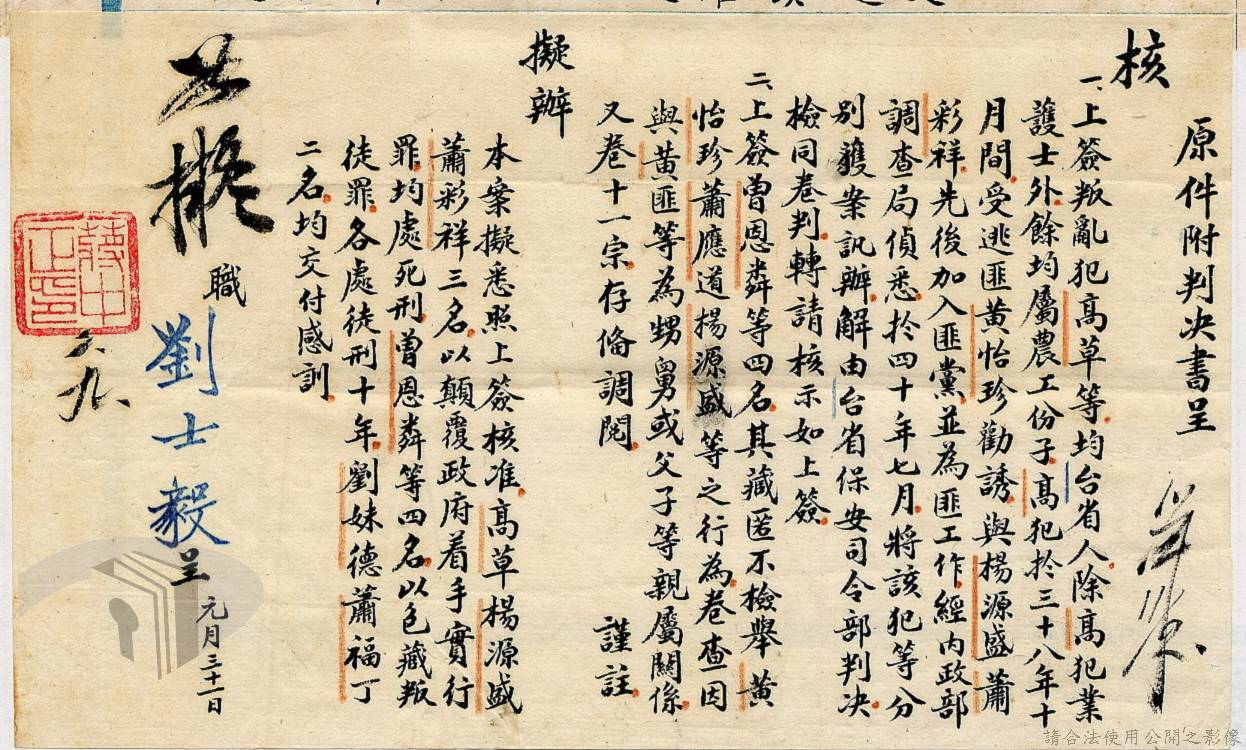 原件附判决書呈
核
一、上簽叛亂犯高草等，均台省人，除高犯業
護士外，餘均屬農工份子，高犯於三十八年十
月間，受逃匪黃怡珍勸誘，與楊源盛蕭
彩祥，先後加入匪黨，並為匪工作，經內政部
調查局偵悉，於四十年七月，將該犯等分
別獲案訊辦，解由台省保安司令部判决，
檢同卷判，轉請核示如上簽。
二、上簽曾恩粦等四名，其藏匿不檢舉黃
怡珍蕭應道楊源盛等之行為，卷查因
與黃匪等為甥舅或父子等親屬關係，
又卷十一宗，存俻調閱。
謹註
擬辦
本案擬悉照上簽核准，高草楊源盛
蕭彩祥三名，以顛覆政府着手實行
罪，均處死刑，曾恩粦等四名，以包藏叛
徒罪，各處徒刑十年，劉妹德蕭福丁
二名，均交付感訓。
如擬
職
劉士毅
呈
元月三十一日
蔣中正印
二、九、
請合法使用公開之影像